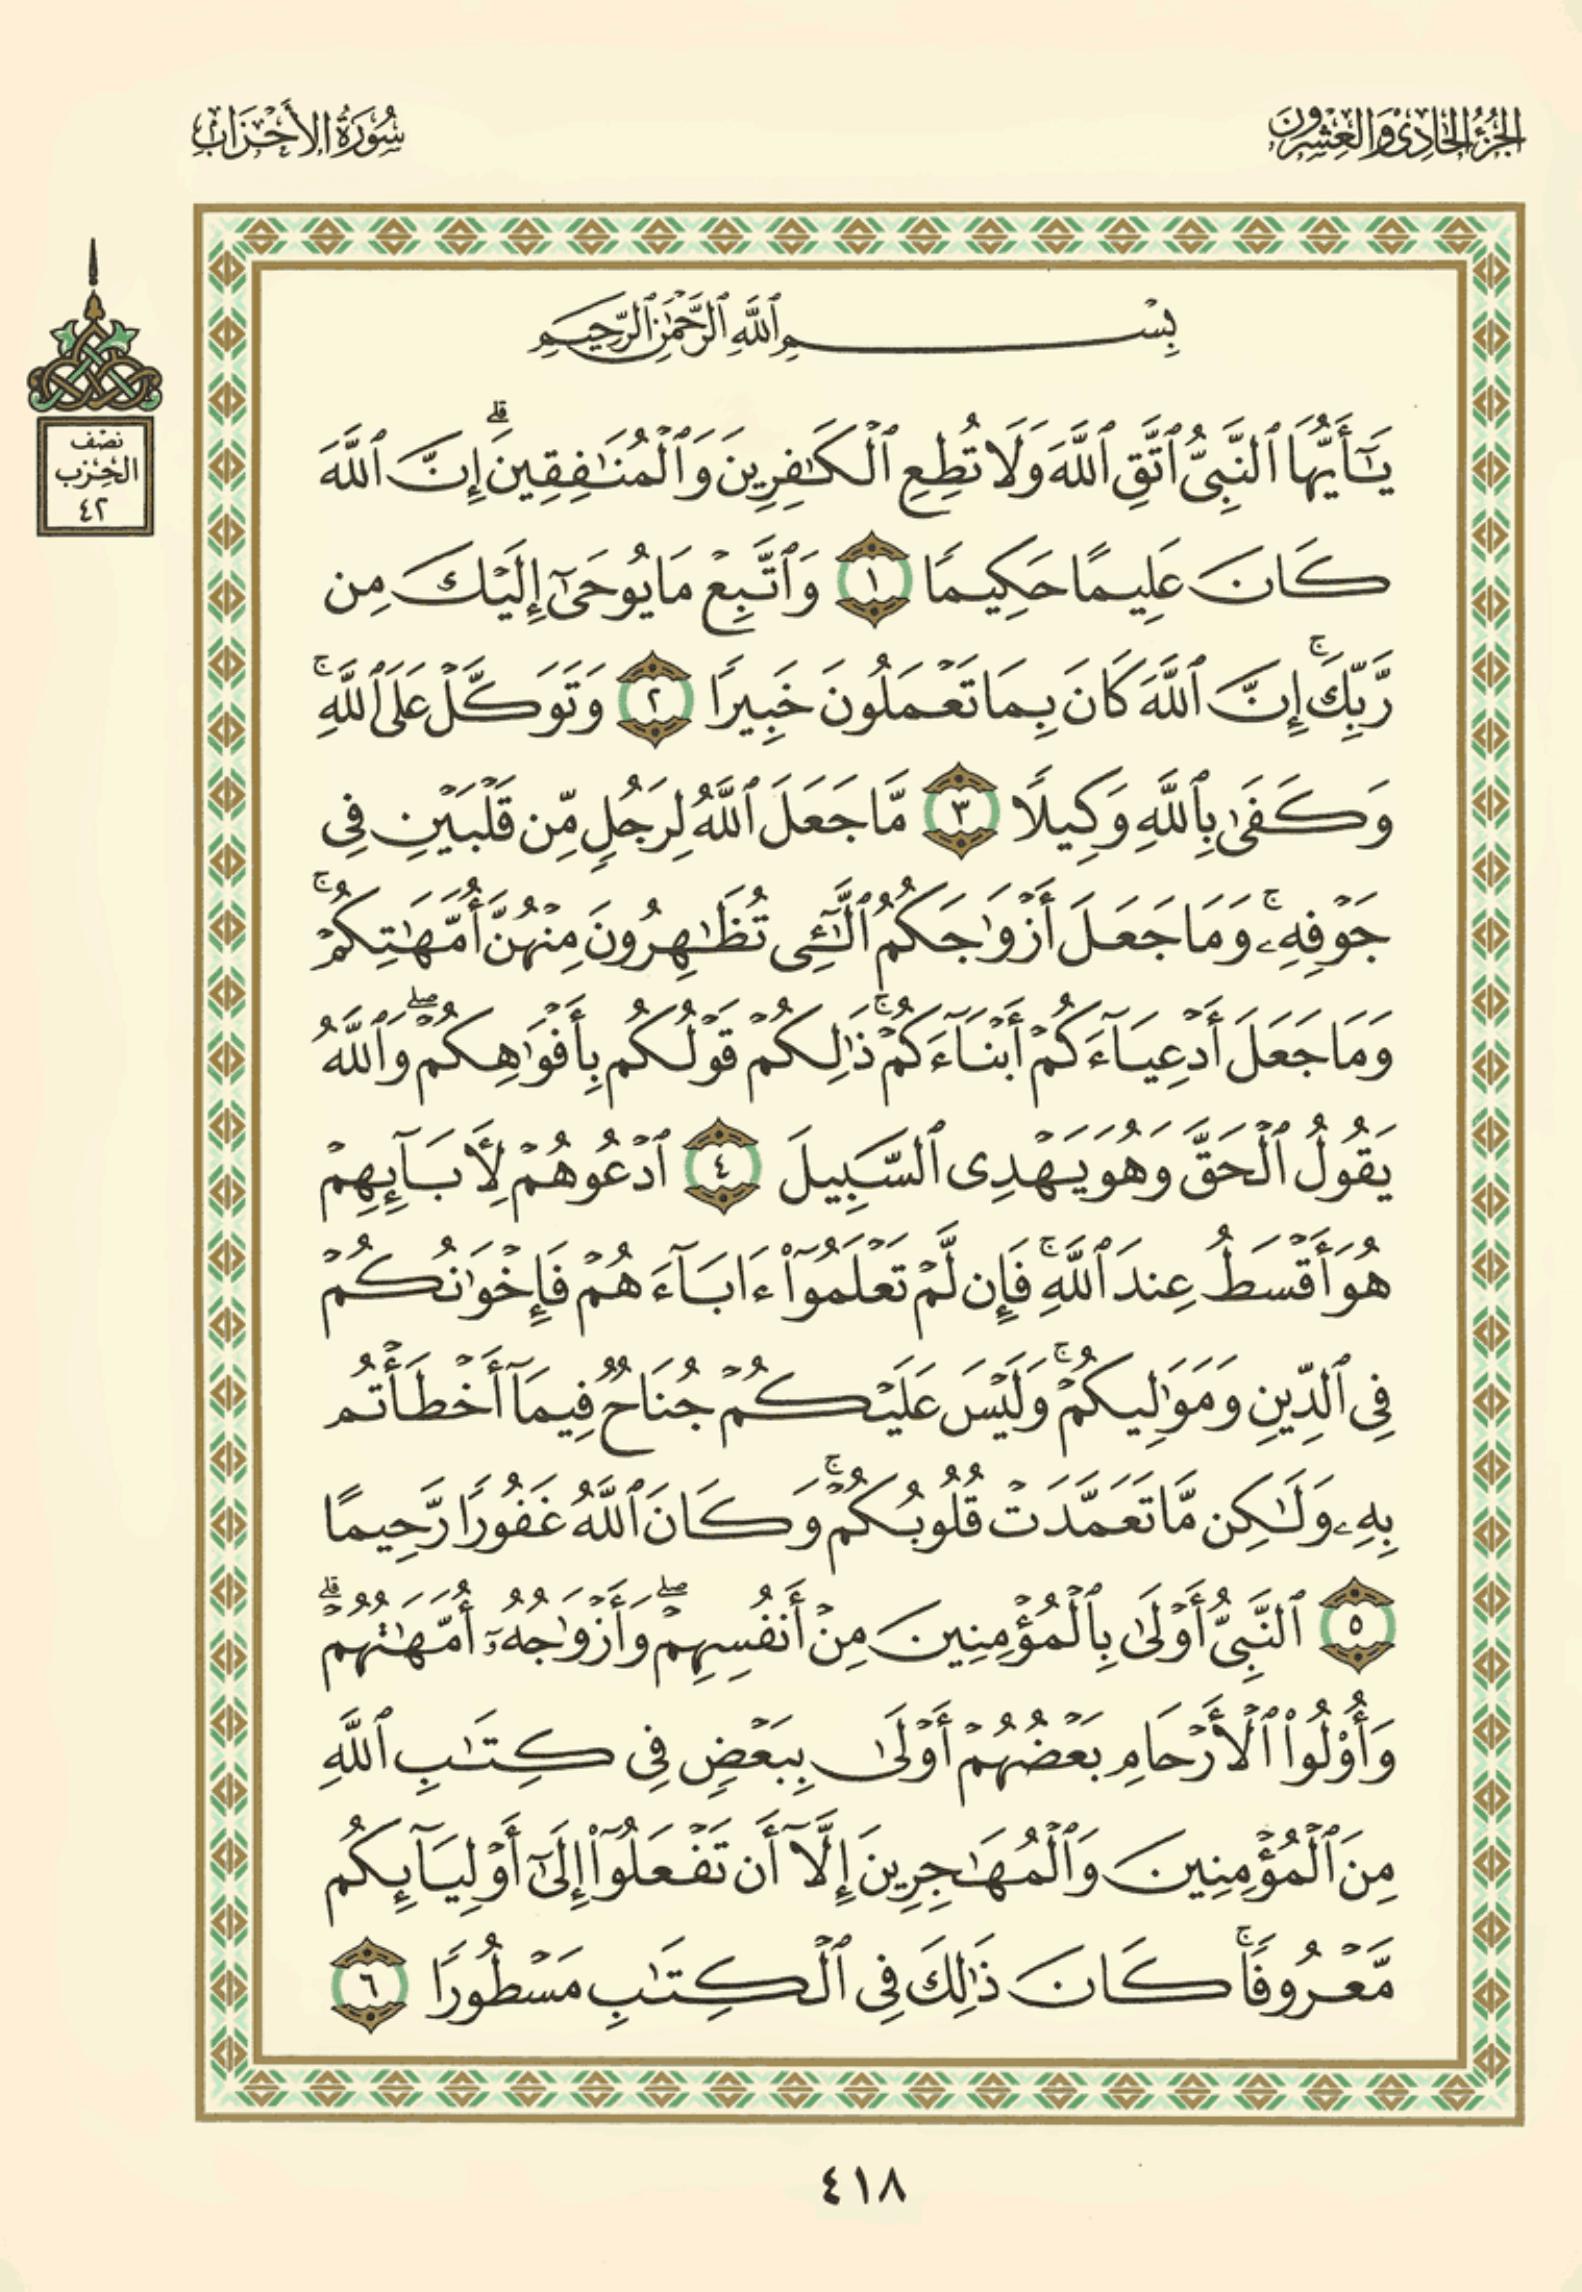 الجزء الحادي والعشرون
سورة الأحزاب
نصف
الحزب
٤٢
بِسۡمِ ٱللَّهِ ٱلرَّحۡمَٰنِ ٱلرَّحِيمِ
يَٰٓأَيُّهَا ٱلنَّبِيُّ ٱتَّقِ ٱللَّهَ وَلَا تُطِعِ ٱلۡكَٰفِرِينَ وَٱلۡمُنَٰفِقِينَۗ إِنَّ ٱللَّهَ
كَانَ عَلِيمًا حَكِيمٗا ١ وَٱتَّبِعۡ مَا يُوحَىٰٓ إِلَيۡكَ مِن
رَّبِّكَۚ إِنَّ ٱللَّهَ كَانَ بِمَا تَعۡمَلُونَ خَبِيرٗا ٢ وَتَوَكَّلۡ عَلَى ٱللَّهِۚ
وَكَفَىٰ بِٱللَّهِ وَكِيلٗا ٣ مَّا جَعَلَ ٱللَّهُ لِرَجُلٖ مِّن قَلۡبَيۡنِ فِي
جَوۡفِهِۦۚ وَمَا جَعَلَ أَزۡوَٰجَكُمُ ٱلَّٰٓـِٔي تُظَٰهِرُونَ مِنۡهُنَّ أُمَّهَٰتِكُمۡۚ
وَمَا جَعَلَ أَدۡعِيَآءَكُمۡ أَبۡنَآءَكُمۡۚ ذَٰلِكُمۡ قَوۡلُكُم بِأَفۡوَٰهِكُمۡۖ وَٱللَّهُ
يَقُولُ ٱلۡحَقَّ وَهُوَ يَهۡدِي ٱلسَّبِيلَ ٤ ٱدۡعُوهُمۡ لِأٓبَآئِهِمۡ
هُوَ أَقۡسَطُ عِندَ ٱللَّهِۚ فَإِن لَّمۡ تَعۡلَمُوٓاْ ءَابَآءَهُمۡ فَإِخۡوَٰنُكُمۡ
فِي ٱلدِّينِ وَمَوَٰلِيكُمۡۚ وَلَيۡسَ عَلَيۡكُمۡ جُنَاحٞ فِيمَآ أَخۡطَأۡتُم
بِهِۦ وَلَٰكِن مَّا تَعَمَّدَتۡ قُلُوبُكُمۡۚ وَكَانَ ٱللَّهُ غَفُورٗا رَّحِيمًا
٥ ٱلنَّبِيُّ أَوۡلَىٰ بِٱلۡمُؤۡمِنِينَ مِنۡ أَنفُسِهِمۡۖ وَأَزۡوَٰجُهُۥٓ أُمَّهَٰتُهُمۡۗ
وَأُوْلُواْ ٱلۡأَرۡحَامِ بَعۡضُهُمۡ أَوۡلَىٰ بِبَعۡضٖ فِي كِتَٰبِ ٱللَّهِ
مِنَ ٱلۡمُؤۡمِنِينَ وَٱلۡمُهَٰجِرِينَ إِلَّآ أَن تَفۡعَلُوٓاْ إِلَىٰٓ أَوۡلِيَآئِكُم
مَّعۡرُوفٗاۚ كَانَ ذَٰلِكَ فِي ٱلۡكِتَٰبِ مَسۡطُورٗا ٦
٤١٨